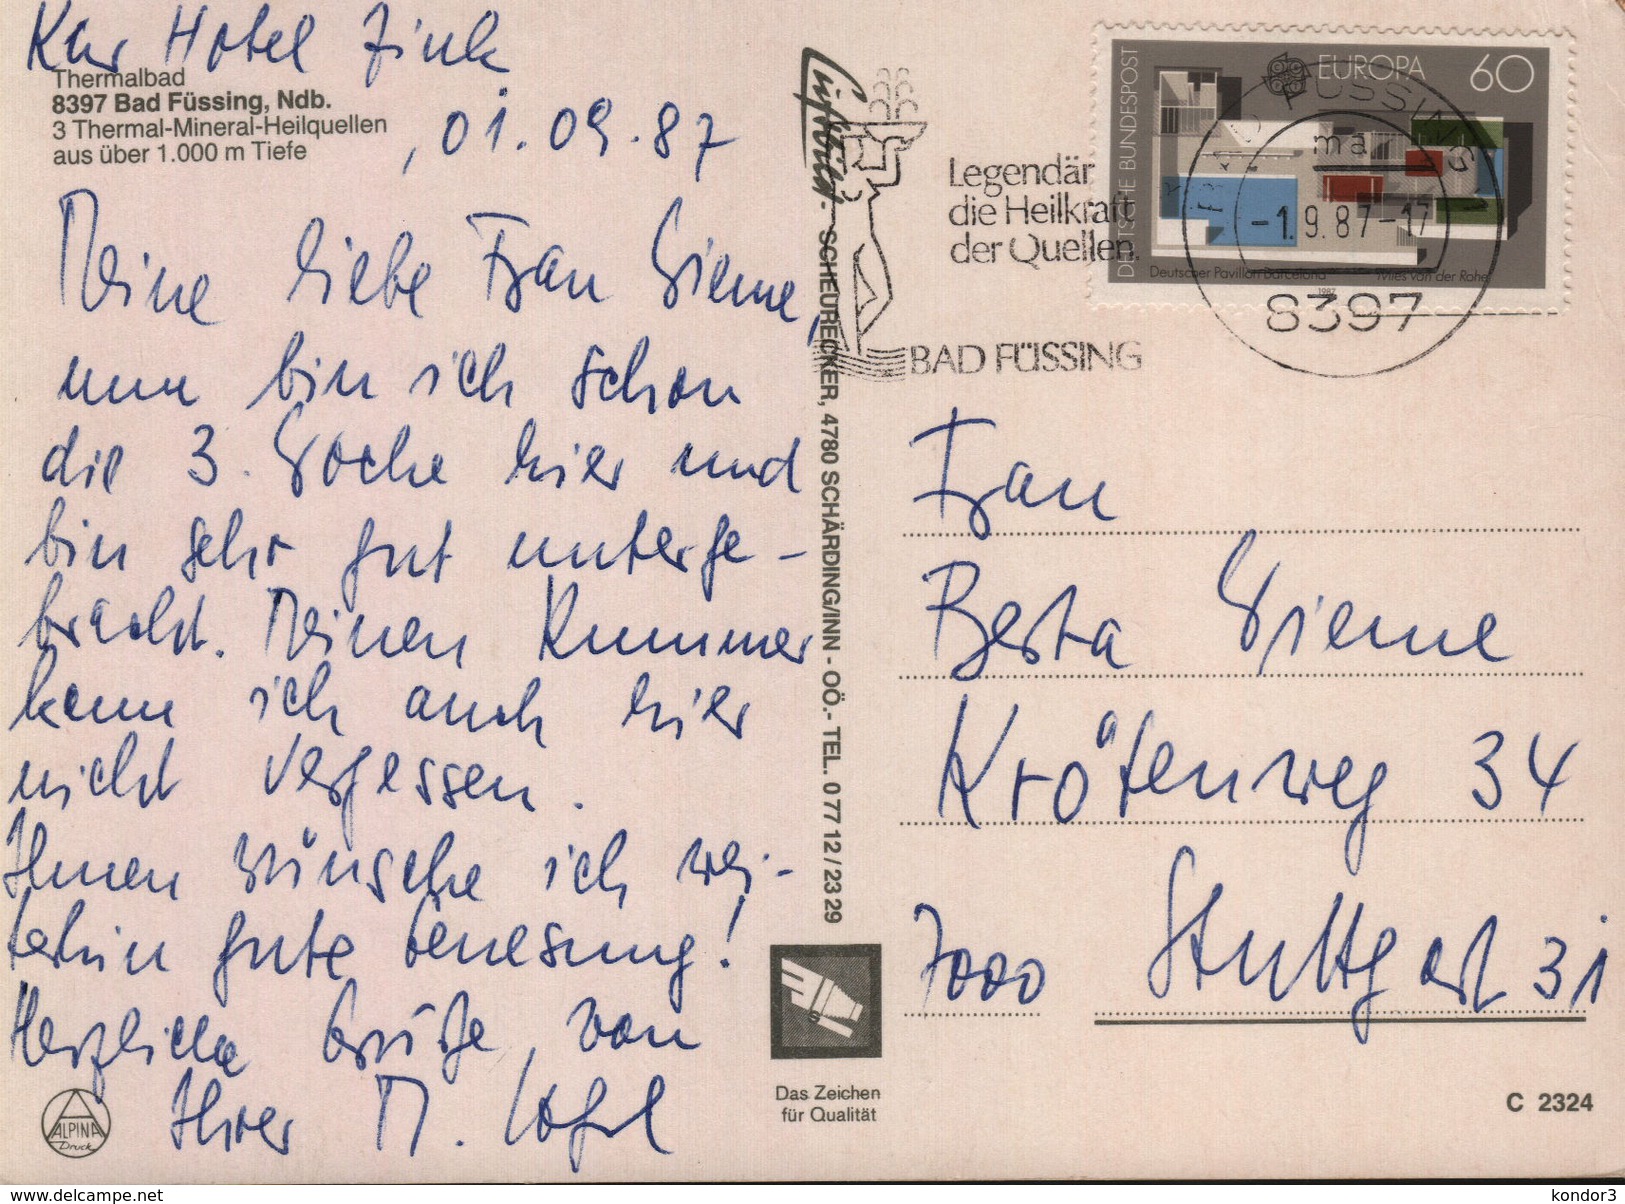 Kur Hotel Zink
Thermalbad
8397 Bad Füssing, Ndb.
3 Thermal-Mineral-Heilquellen
aus über 1.000 m Tiefe
, 01.09.87
Meine liebe Frau Wieme,
nun bin ich schon
die 3. Woche hier und
bin sehr gut unterge-
bracht. Meinen Kummer
kann ich auch hier
nicht vergessen.
Ihnen wünsche ich wei-
terhin gute Genesung!
Herzliche Grüße, von
Ihrer M.
ALPINA
Druck
Luftbild- SCHEURECKER, 4780 SCHÄRDING/INN - OÖ.- TEL. 0 77 12 / 23 29
Das Zeichen
für Qualität
Legendär
die Heilkraft
der Quellen.
BAD FÜSSING
DEUTSCHE BUNDESPOST
EUROPA 60
Deutscher Pavillon Barcelona Mies van der Rohe
1987
BAD FÜSSING 1
ma
-1.9.87-17
8397
Frau
Berta Wieme
Krötenweg 34
7000 Stuttgart 31
C 2324
www.delcampe.net
kondor3